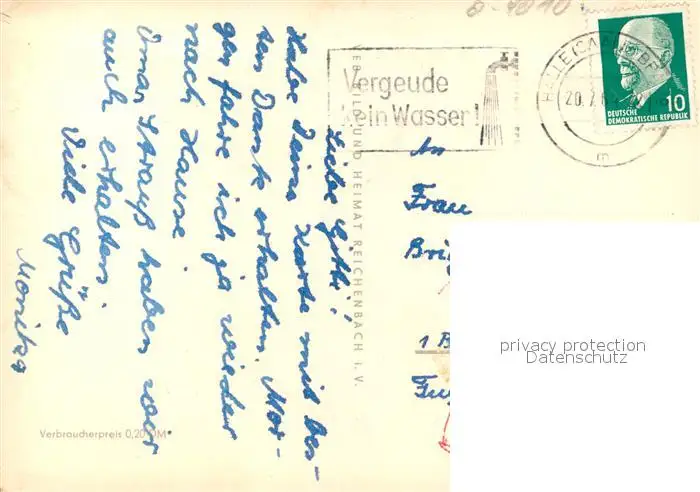 8-4010
Vergeude
kein Wasser!
HALLE (SAALE)
20.7.6
m
10
DEUTSCHE
DEMOKRATISCHE REPUBLIK
Liebe Gitti!
Habe Deine Karte mit bes-
ten Dank erhalten. Mor-
gen fahre ich ja wieder
nach Hause.
Omas Strauß haben wir
auch erhalten.
Viele Grüße
Monika
VEB BILD UND HEIMAT REICHENBACH i. V.
Verbraucherpreis 0,20 DM
An
Frau
Brig
1 B
privacy protection
Datenschutz